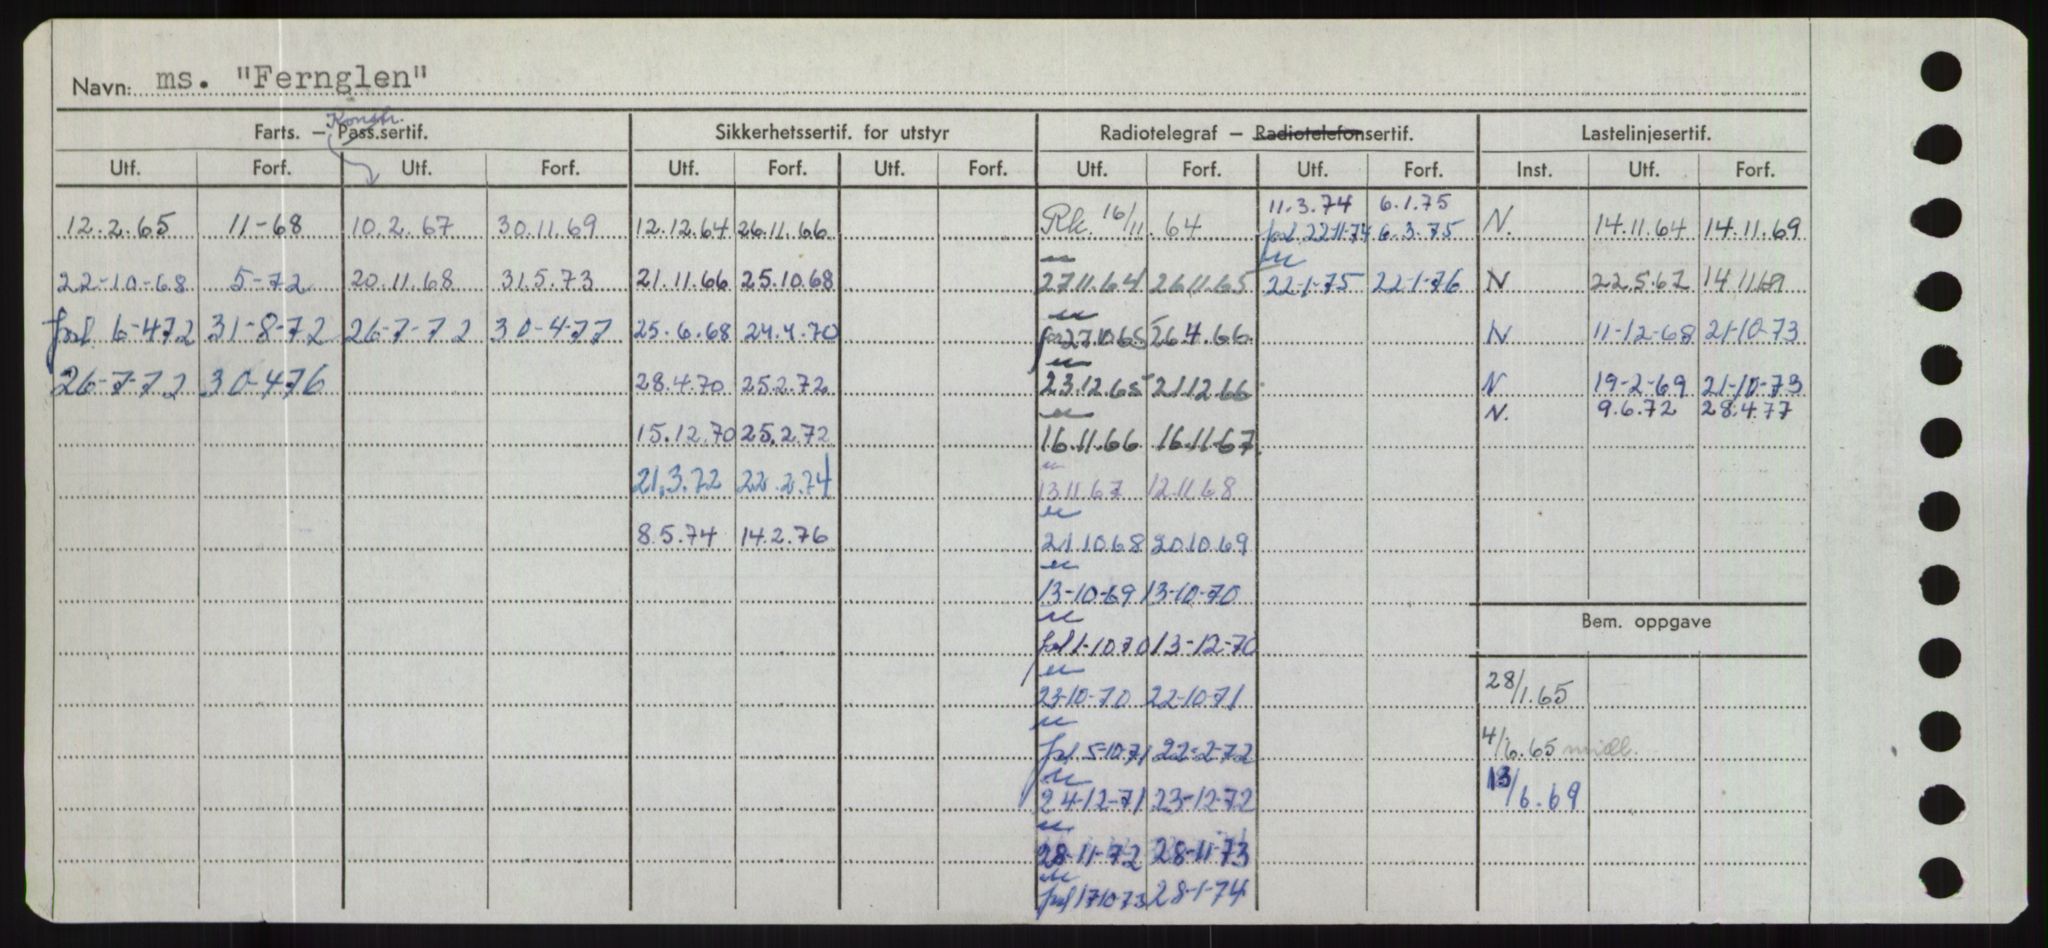 Navn: ms. "Fernglen"
Konstr.
Farts. – Pass.sertif. Sikkerhetssertif. for utstyr Radiotelegraf – Radiotelefonsertif. Lastelinjesertif.
Utf. Forf. Utf. Forf. Utf. Forf. Utf. Forf. Utf. Forf. Utf. Forf. Inst. Utf. Forf.
11.3.74 6.1.75
12.2.65 11-68 10.2.67 30.11.69 12.12.64 26.11.66 Rk. 16/11.64 forl. 22-11-74 6.3.75 N. 14.11.64 14.11.69
22-10-68 5-72 20.11.68 31.5.73 21.11.66 25.10.68 27.11.64 26.11.65 22-1-75 22-1-76 N 22.5.67 14.11.69
forl 6-4-72 31-8-72 26-7-72 30-4-77 25.6.68 24.4.70 27.10.65 26.4.66 N 11-12-68 21-10-73
26-7-72 30-4-76 28.4.70 25.2.72 23.12.65 21.12.66 N 19-2-69 21-10-73
N. 9.6.72 28.4.77
15.12.70 25.2.72 16.11.66 16.11.67
21.3.72 22.2.74 13.11.67 12.11.68
8.5.74 14.2.76 21.10.68 20.10.69
13-10-69 13-10-70
Bem. oppgave
forl 1-10-70 13-12-70
23-10-70 22-10-71 28/1.65
forl. 5-10-71 22-2-72 4/6.65 midl.
24-12-71 23-12-72 13/6.69
28-11-72 28-11-73
forl 17-10-73 28-1-74